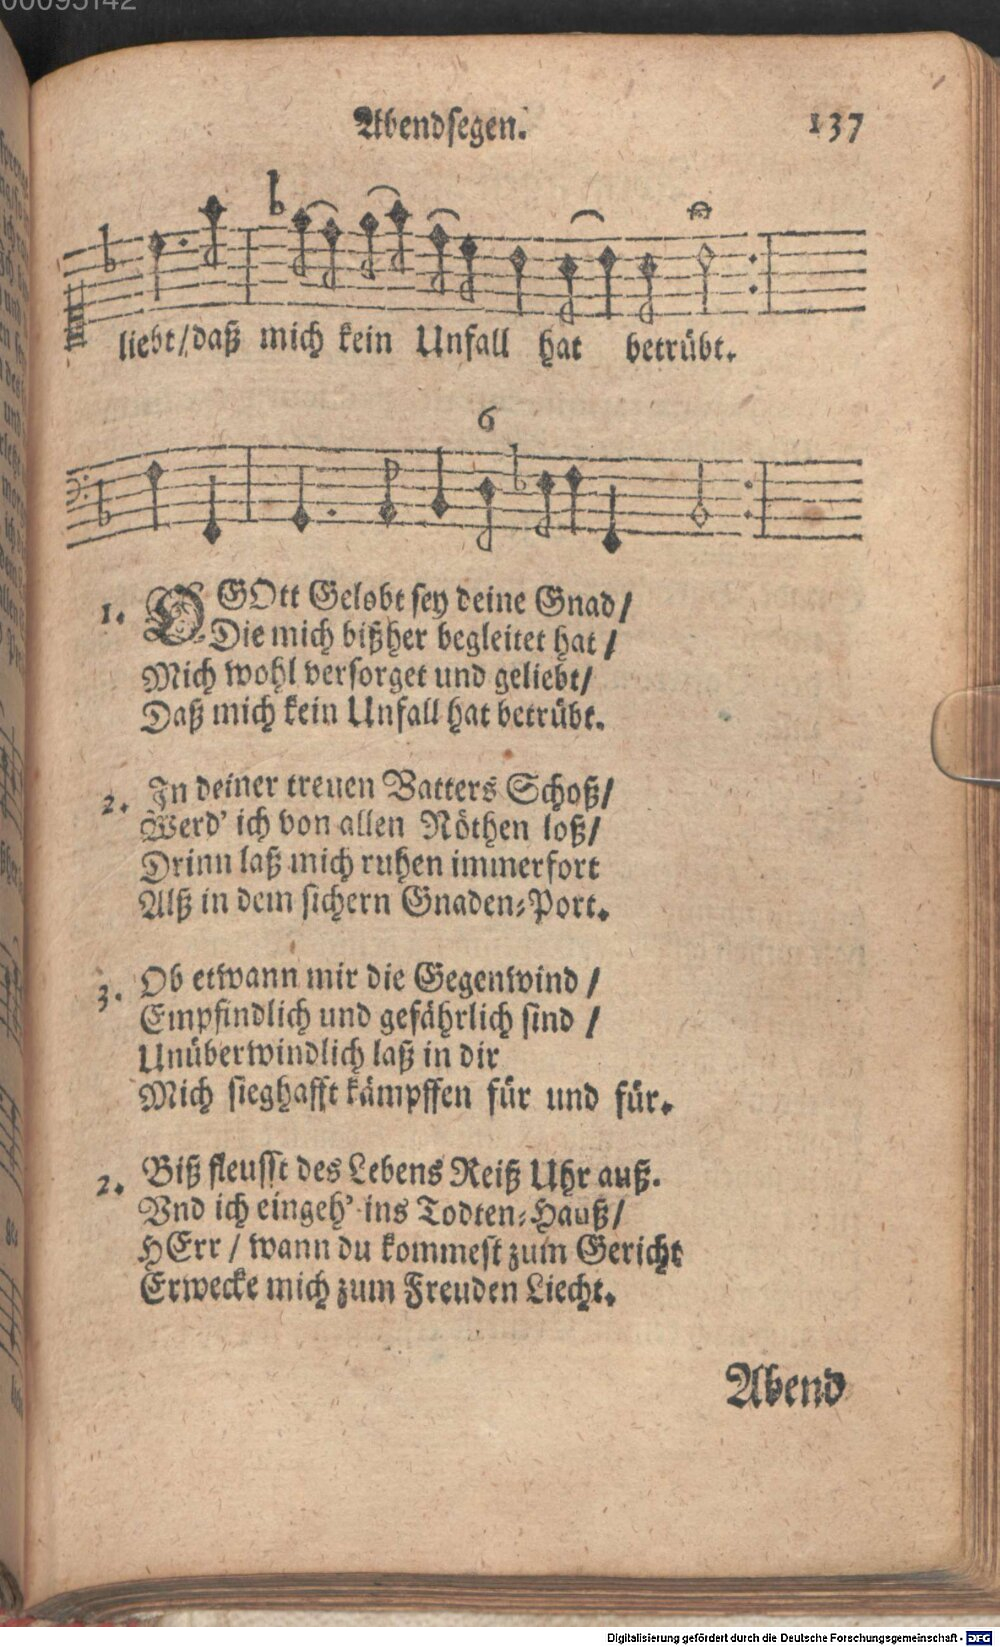 00095142
Abendsegen. 137
liebt/daß mich kein Unfall hat betrübt.
6
1. O GOtt Gelobt sey deine Gnad/
Die mich bißher begleitet hat/
Mich wohl versorget und geliebt/
Daß mich kein Unfall hat betrübt.
2. In deiner treuen Vatters Schoß/
Werd' ich von allen Nöthen loß/
Drinn laß mich ruhen immerfort
Alß in dem sichern Gnaden-Port.
3. Ob etwann mir die Gegenwind/
Empfindlich und gefährlich sind/
Unüberwindlich laß in dir
Mich sieghafft kämpffen für und für.
2. Biß fleusst des Lebens Reiß Uhr auß.
Vnd ich eingeh' ins Todten-Hauß/
HErr/ wann du kommest zum Gericht
Erwecke mich zum Freuden Liecht.
Abend
Digitalisierung gefördert durch die Deutsche Forschungsgemeinschaft - DFG